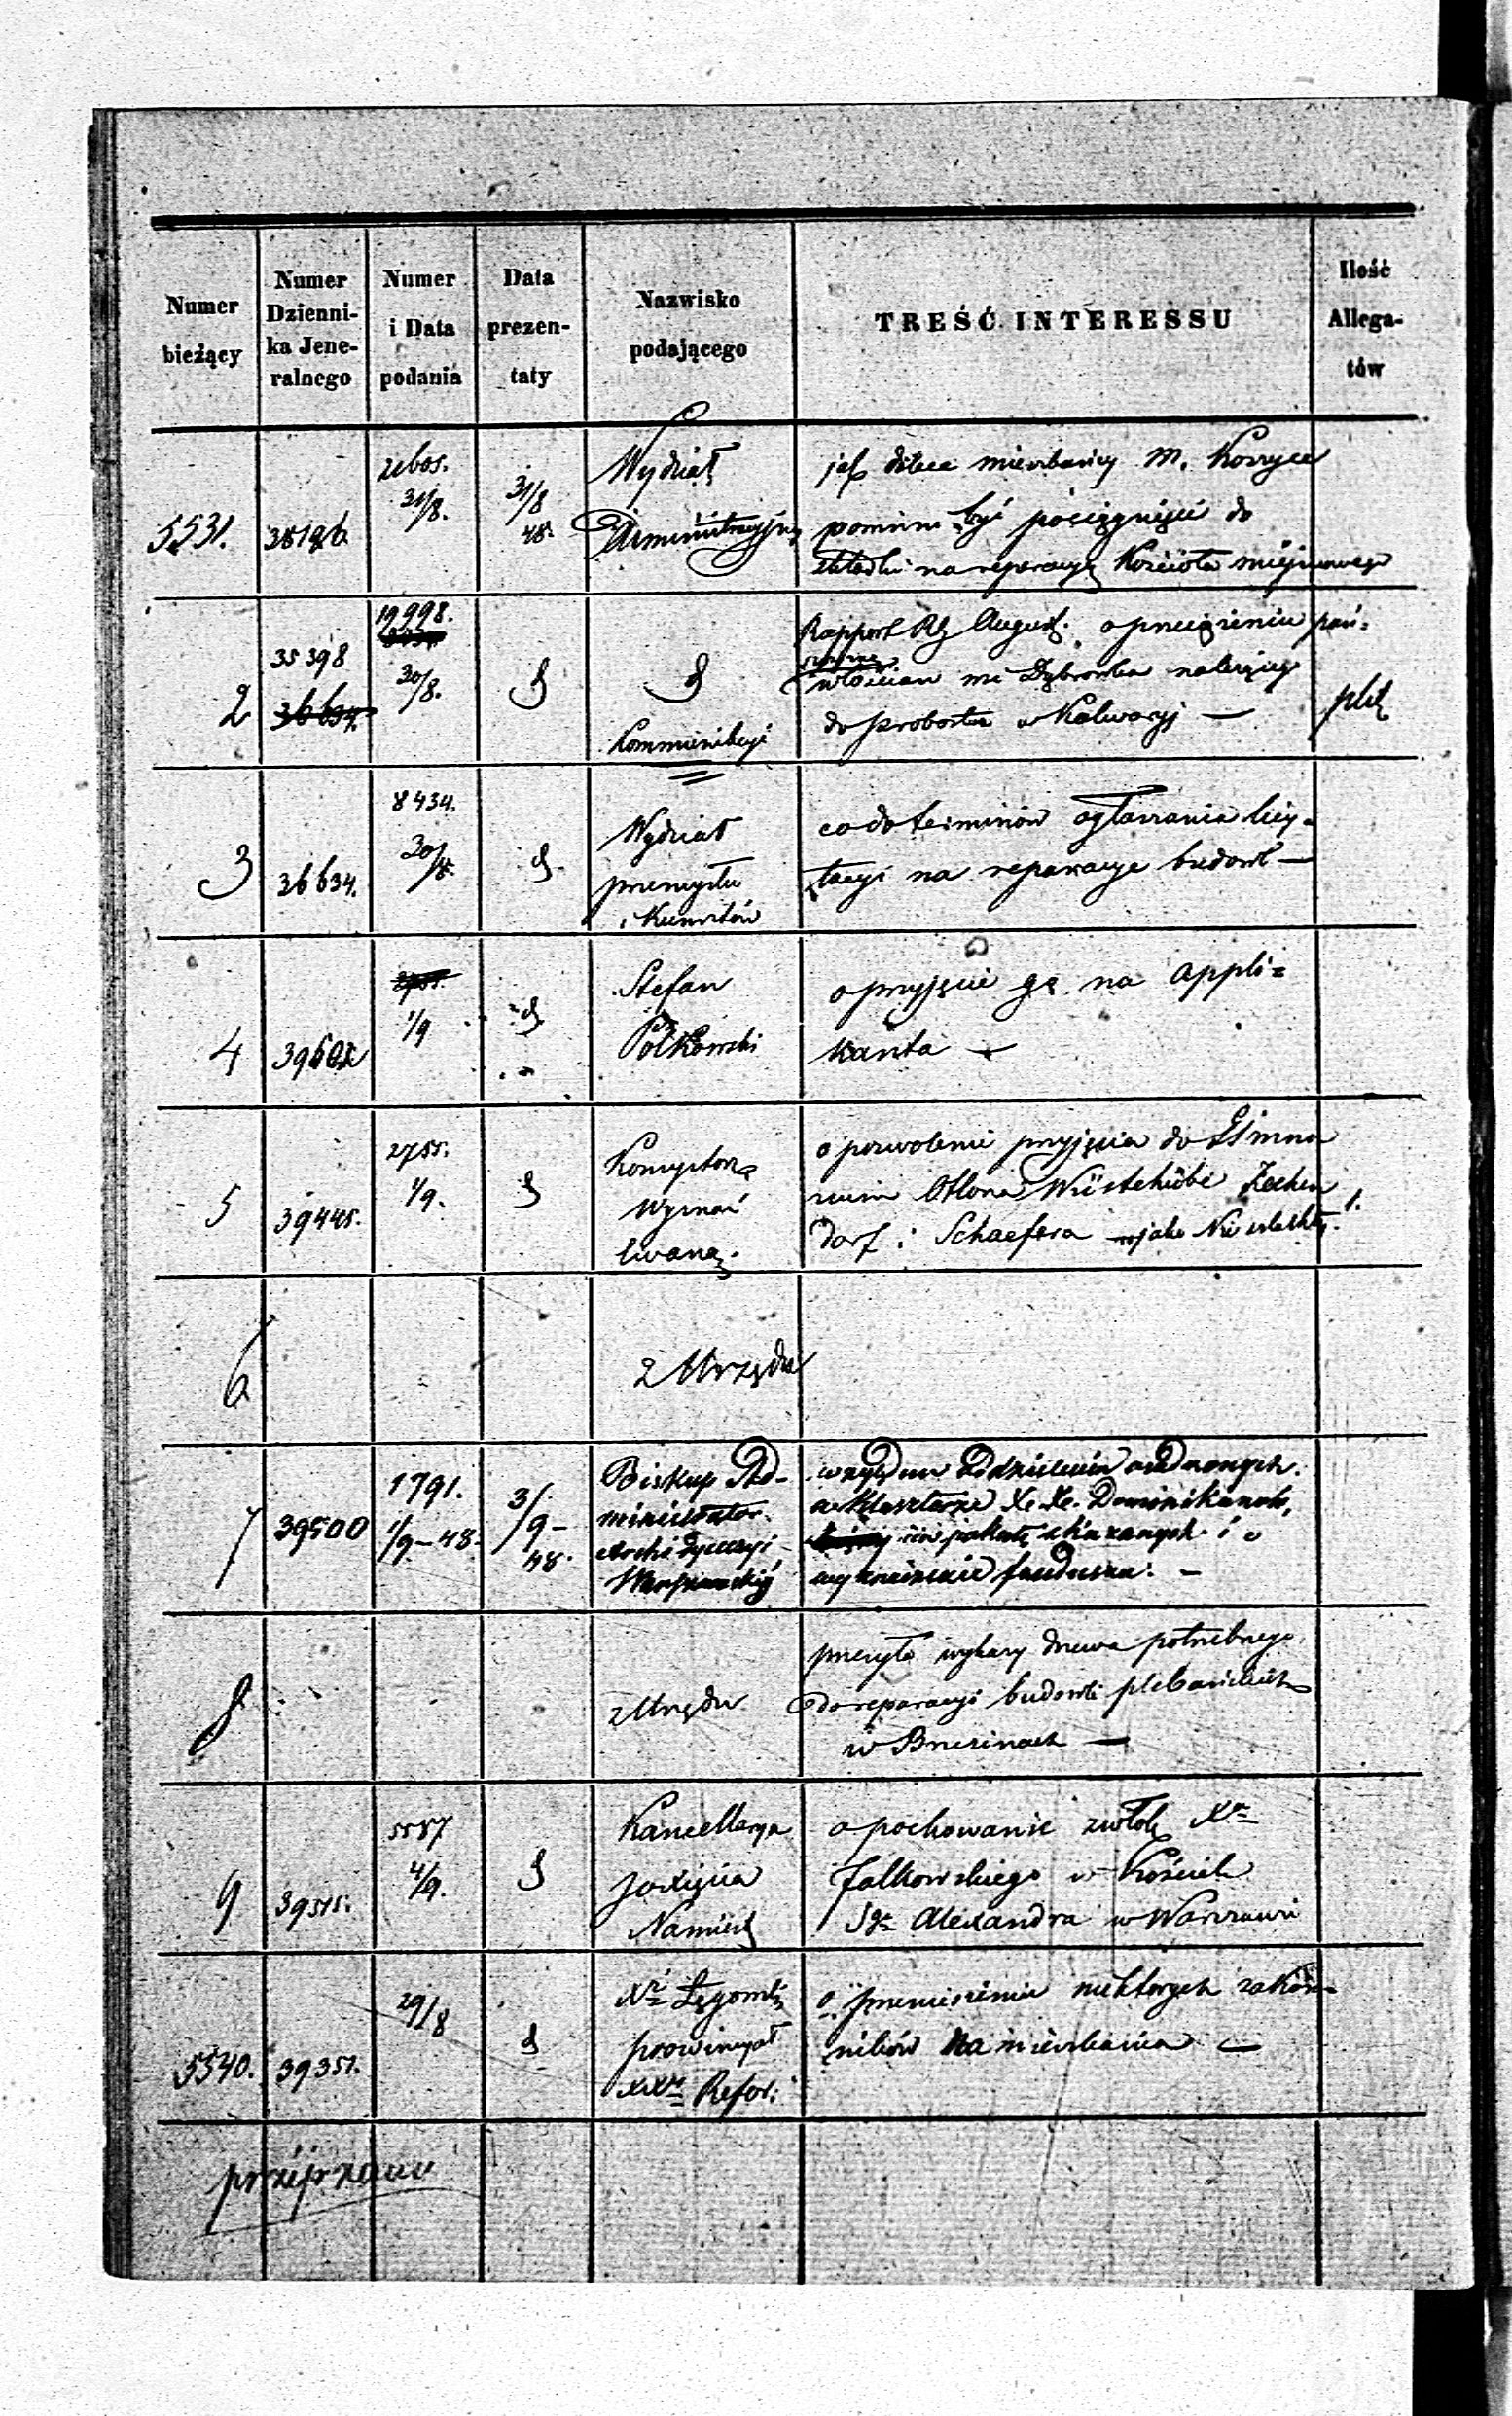 Numer bieżący
Numer Dzienni-ka Jene-ralnego
Numer i Data podania
Data prezen-taty
Nazwisko podającego
TREŚĆ INTERESSU
Ilość Allega-tów
5531.
31/8.
31/8
48.
Wydział
Administracyjny
mieszkańcy M.
powinni być pociągnięci do
składki na reparacyą Kościoła miejscowego
2
35398
19998.
30/8.
Kommunikuje
Rapport August. o
włościan
do probostwa w Kalwaryi —
3
36634.
8434.
30/8.
Wydział
przemysłu
i Kunsztów
co do terminów ogłaszania licy-
tacyi na reparacye budowl —
4
1/9
Stefan
Polkowski
o przyjęcie go na appli=
kanta —
5
39445.
2755.
1/9.
o pozwolenie przyjęcia do Gimna
Ottona Wüstehube Zechen
dorf i Schaefera jako
1.
6
z Urzędu
7
39500
1791.
1/9-48.
3/9-
48.
Biskup Ad-
ministrator
Archi Dyecezyi
Warszawskiej
względem osadzonych
w Klasztorze Xc.Xc. Dominikanów,
na pokutę skazanych i o
fundusza. —
8
z Urzędu
przesyła wykazy drzewa potrzebnego
do reparacyi budowli plebańskich
w Brzezinach —
9
39515.
5587
4/9.
Kancellarya
Jo Xięcia
Namiest
o pochowanie zwłok Xa
Falkowskiego w Kościele
Sgo Alexandra w Warszawie
5540.
39351.
29/8
prowincyał
XXw Refor:
o przeniesienie niektorych zakon=
ników na mieszkania —
przejrzano